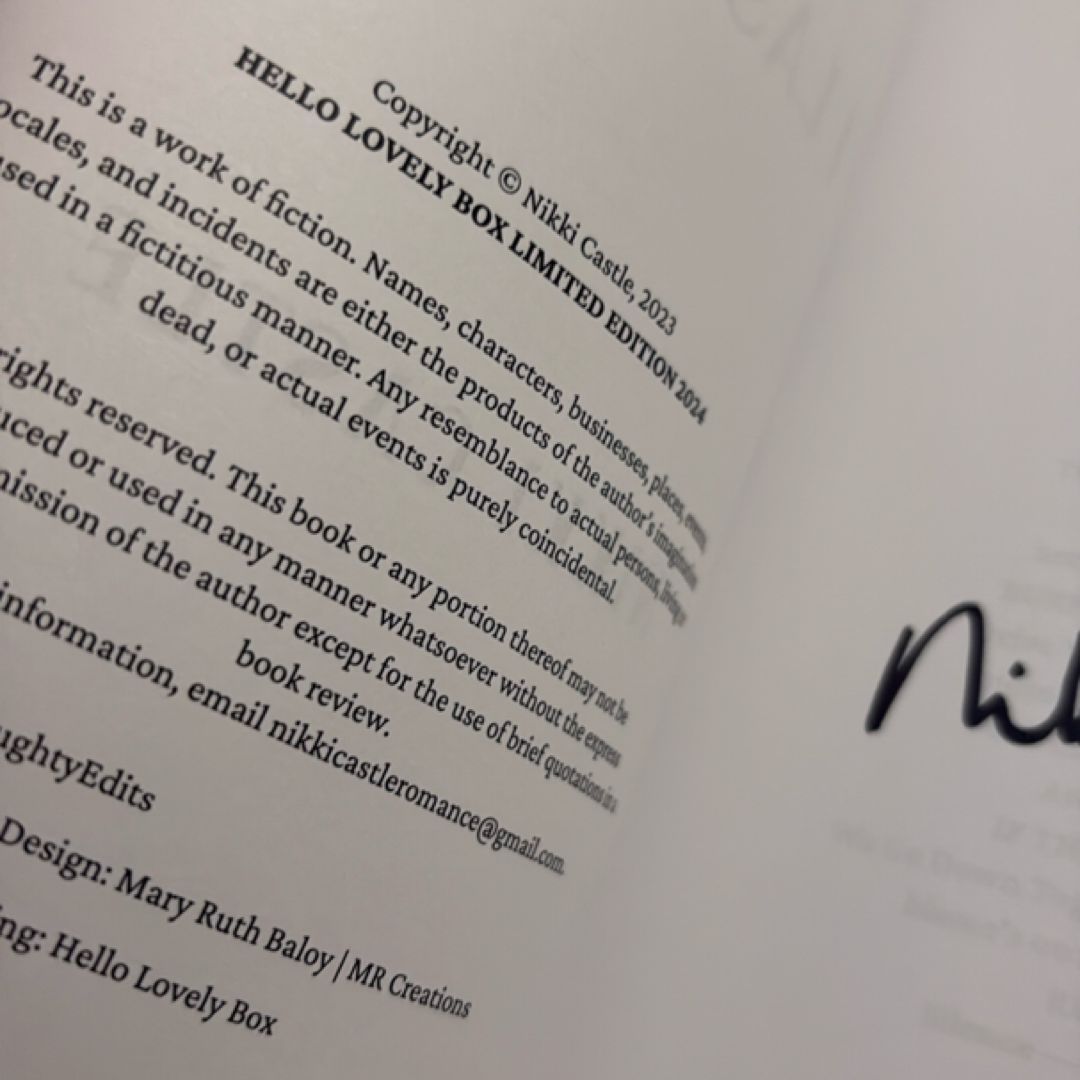 Copyright © Nikki Castle, 2023
HELLO LOVELY BOX LIMITED EDITION 2024
This is a work of fiction. Names, characters, businesses, places, events,
ocales, and incidents are either the products of the author's imagination
used in a fictitious manner. Any resemblance to actual persons, living or
dead, or actual events is purely coincidental.
rights reserved. This book or any portion thereof may not be
uced or used in any manner whatsoever without the express
mission of the author except for the use of brief quotations in a
book review.
information, email nikkicastleromance@gmail.com.
ughtyEdits
Design: Mary Ruth Baloy | MR Creations
ing: Hello Lovely Box
Nik